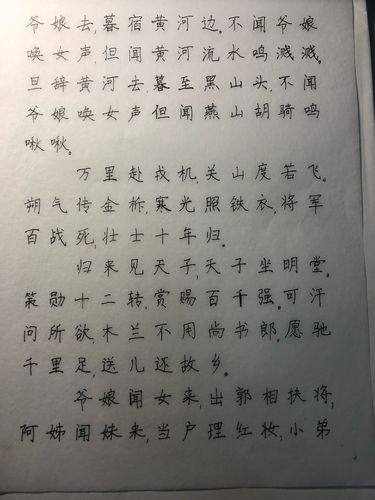 爷娘去,暮宿黄河边。不闻爷娘
唤女声,但闻黄河流水鸣溅溅。
旦辞黄河去,暮至黑山头,不闻
爷娘唤女声但闻燕山胡骑鸣
啾啾。
万里赴戎机,关山度若飞。
朔气传金柝,寒光照铁衣,将军
百战死,壮士十年归。
归来见天子,天子坐明堂。
策勋十二转,赏赐百千强。可汗
问所欲,木兰不用尚书郎,愿驰
千里足,送儿还故乡。
爷娘闻女来,出郭相扶将,
阿姊闻妹来,当户理红妆,小弟